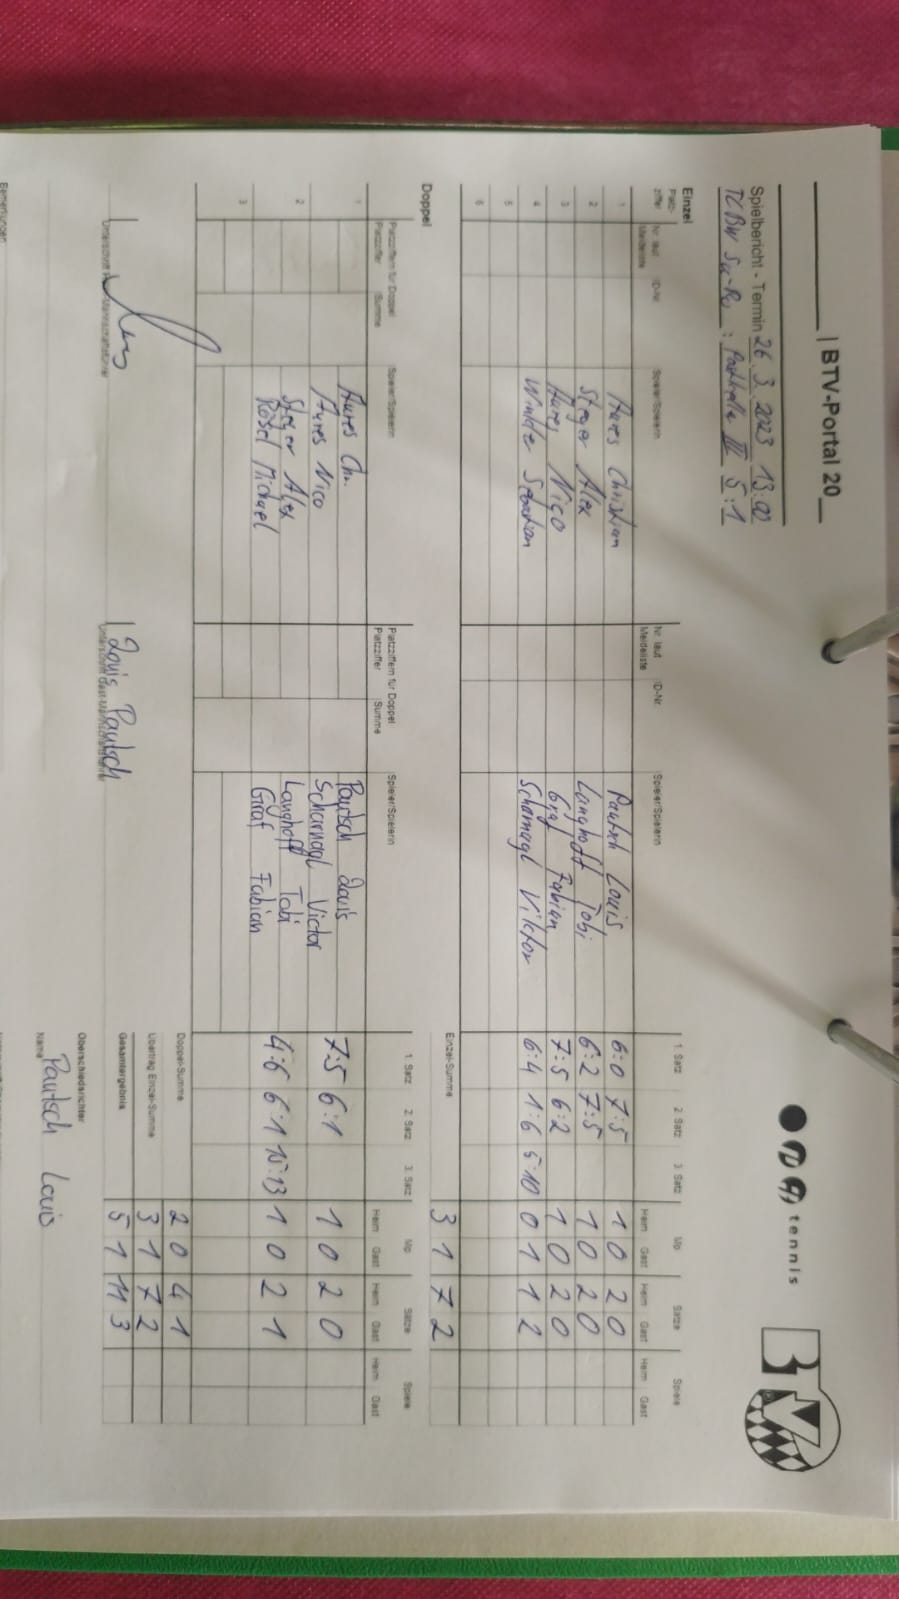 | BTV-Portal 20__
tennis
BTV
Spielbericht - Termin 26.3.2023 13:00
TCBW Su-Ro : Parkhalle III 5:1
Einzel
Platz- Nr. laut ID-Nr. Spieler/Spielerin Nr. laut ID-Nr. Spieler/Spielerin 1. Satz 2. Satz 3. Satz Mp Sätze Spiele
ziffer Meldeliste Meldeliste Heim Gast Heim Gast Heim Gast
1 Aures Christian Pautsch Louis 6:0 7:5 1 0 2 0
2 Steger Alex Langhoff Tobi 6:2 7:5 1 0 2 0
3 Aures Nico Graf Fabian 7:5 6:2 1 0 2 0
4 Winkler Sebastian Scharnagl Viktor 6:4 1:6 5:10 0 1 1 2
5
6
Einzel-Summe 3 1 7 2
Doppel
Platzziffern für Doppel Spieler/Spielerin Platzziffern für Doppel Spieler/Spielerin 1. Satz 2. Satz 3. Satz Mp Sätze Spiele
Platzziffer Summe Platzziffer Summe Heim Gast Heim Gast Heim Gast
1 Aures Chr. Pautsch Louis
Aures Nico Scharnagl Victor 7:5 6:1 1 0 2 0
2 Steger Alex Langhoff Tobi
Rösel Michael Graf Fabian 4:6 6:1 15:13 1 0 2 1
3
Doppel-Summe 2 0 4 1
Übertrag Einzel-Summe 3 1 7 2
Gesamtergebnis 5 1 11 3
Louis Pautsch
Unterschrift Gast-Mannschaftsführer
Oberschiedsrichter
Name Pautsch Louis
Bemerkungen